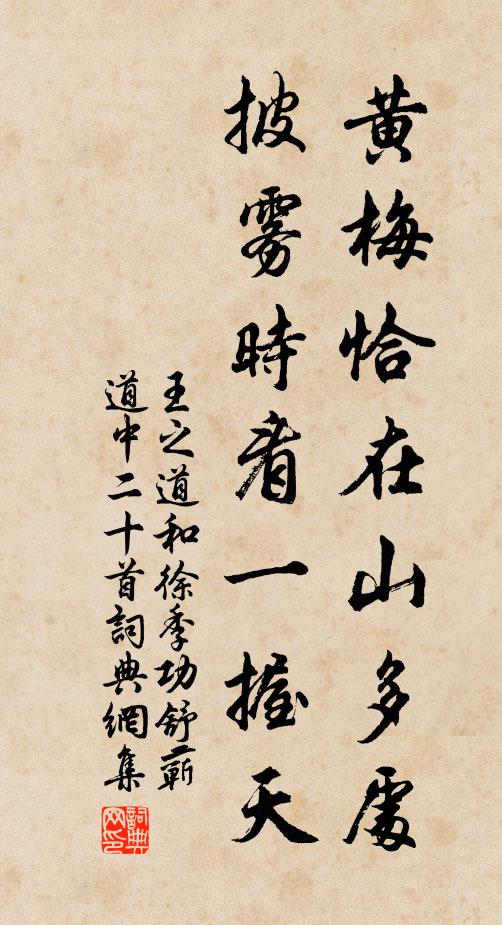 黄梅恰在山多處
披雾時看一握天
王之道和徐季功舒蕲
道中二十首詞典網集
詞典网印